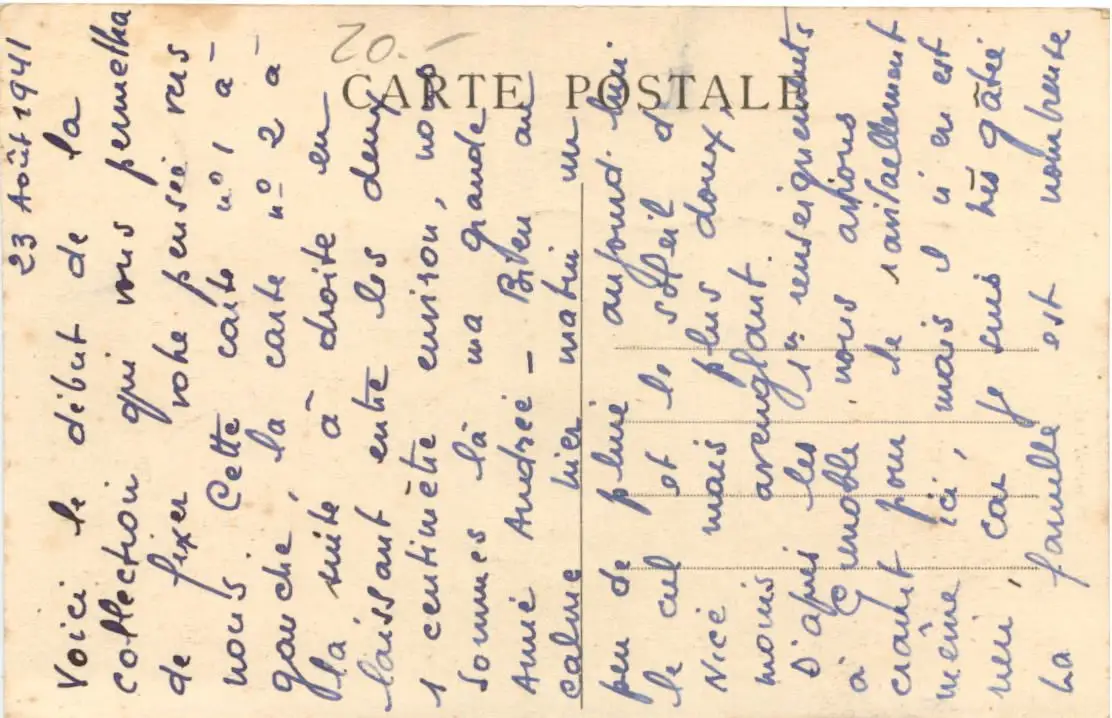 20.-
CARTE POSTALE
23 Août 1941
Voici le début de la
collection qui vous permettra
de fixer votre pensée vers
nous. Cette carte n° 1 à
gauche, la carte n° 2 à
la suite à droite en
laissant entre les deux
1 centimètre environ, nous
sommes là ma grande
Amie Andrée - Bien au
calme hier matin un
peu de pluie aujourd'hui
le ciel et le soleil de
Nice mais plus doux,
moins aveuglant.
D'après les 1ers renseignements
à Grenoble nous avions
craint pour le ravitaillement
même ici, mais il n'en est
rien, car je suis très gâtée
La famille est nombreuse